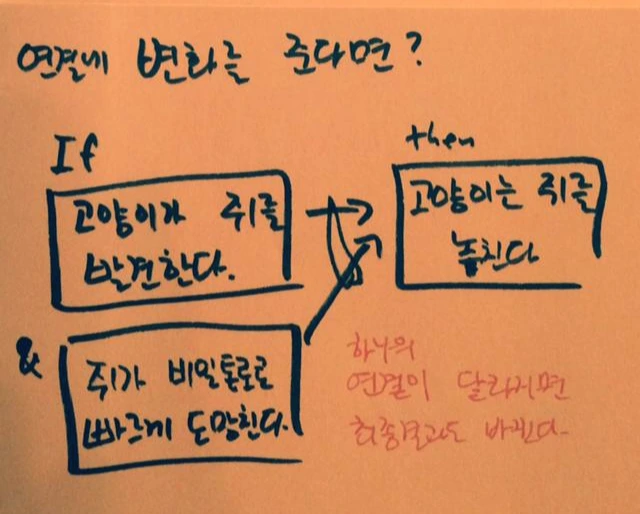 연결에 변화를 준다면?
If
고양이가 쥐를
발견한다.
then
고양이는 쥐를
놓친다
&
쥐가 비밀통로로
빠르게 도망친다.
하나의
연결이 달라지면
최종결과도 바뀐다.